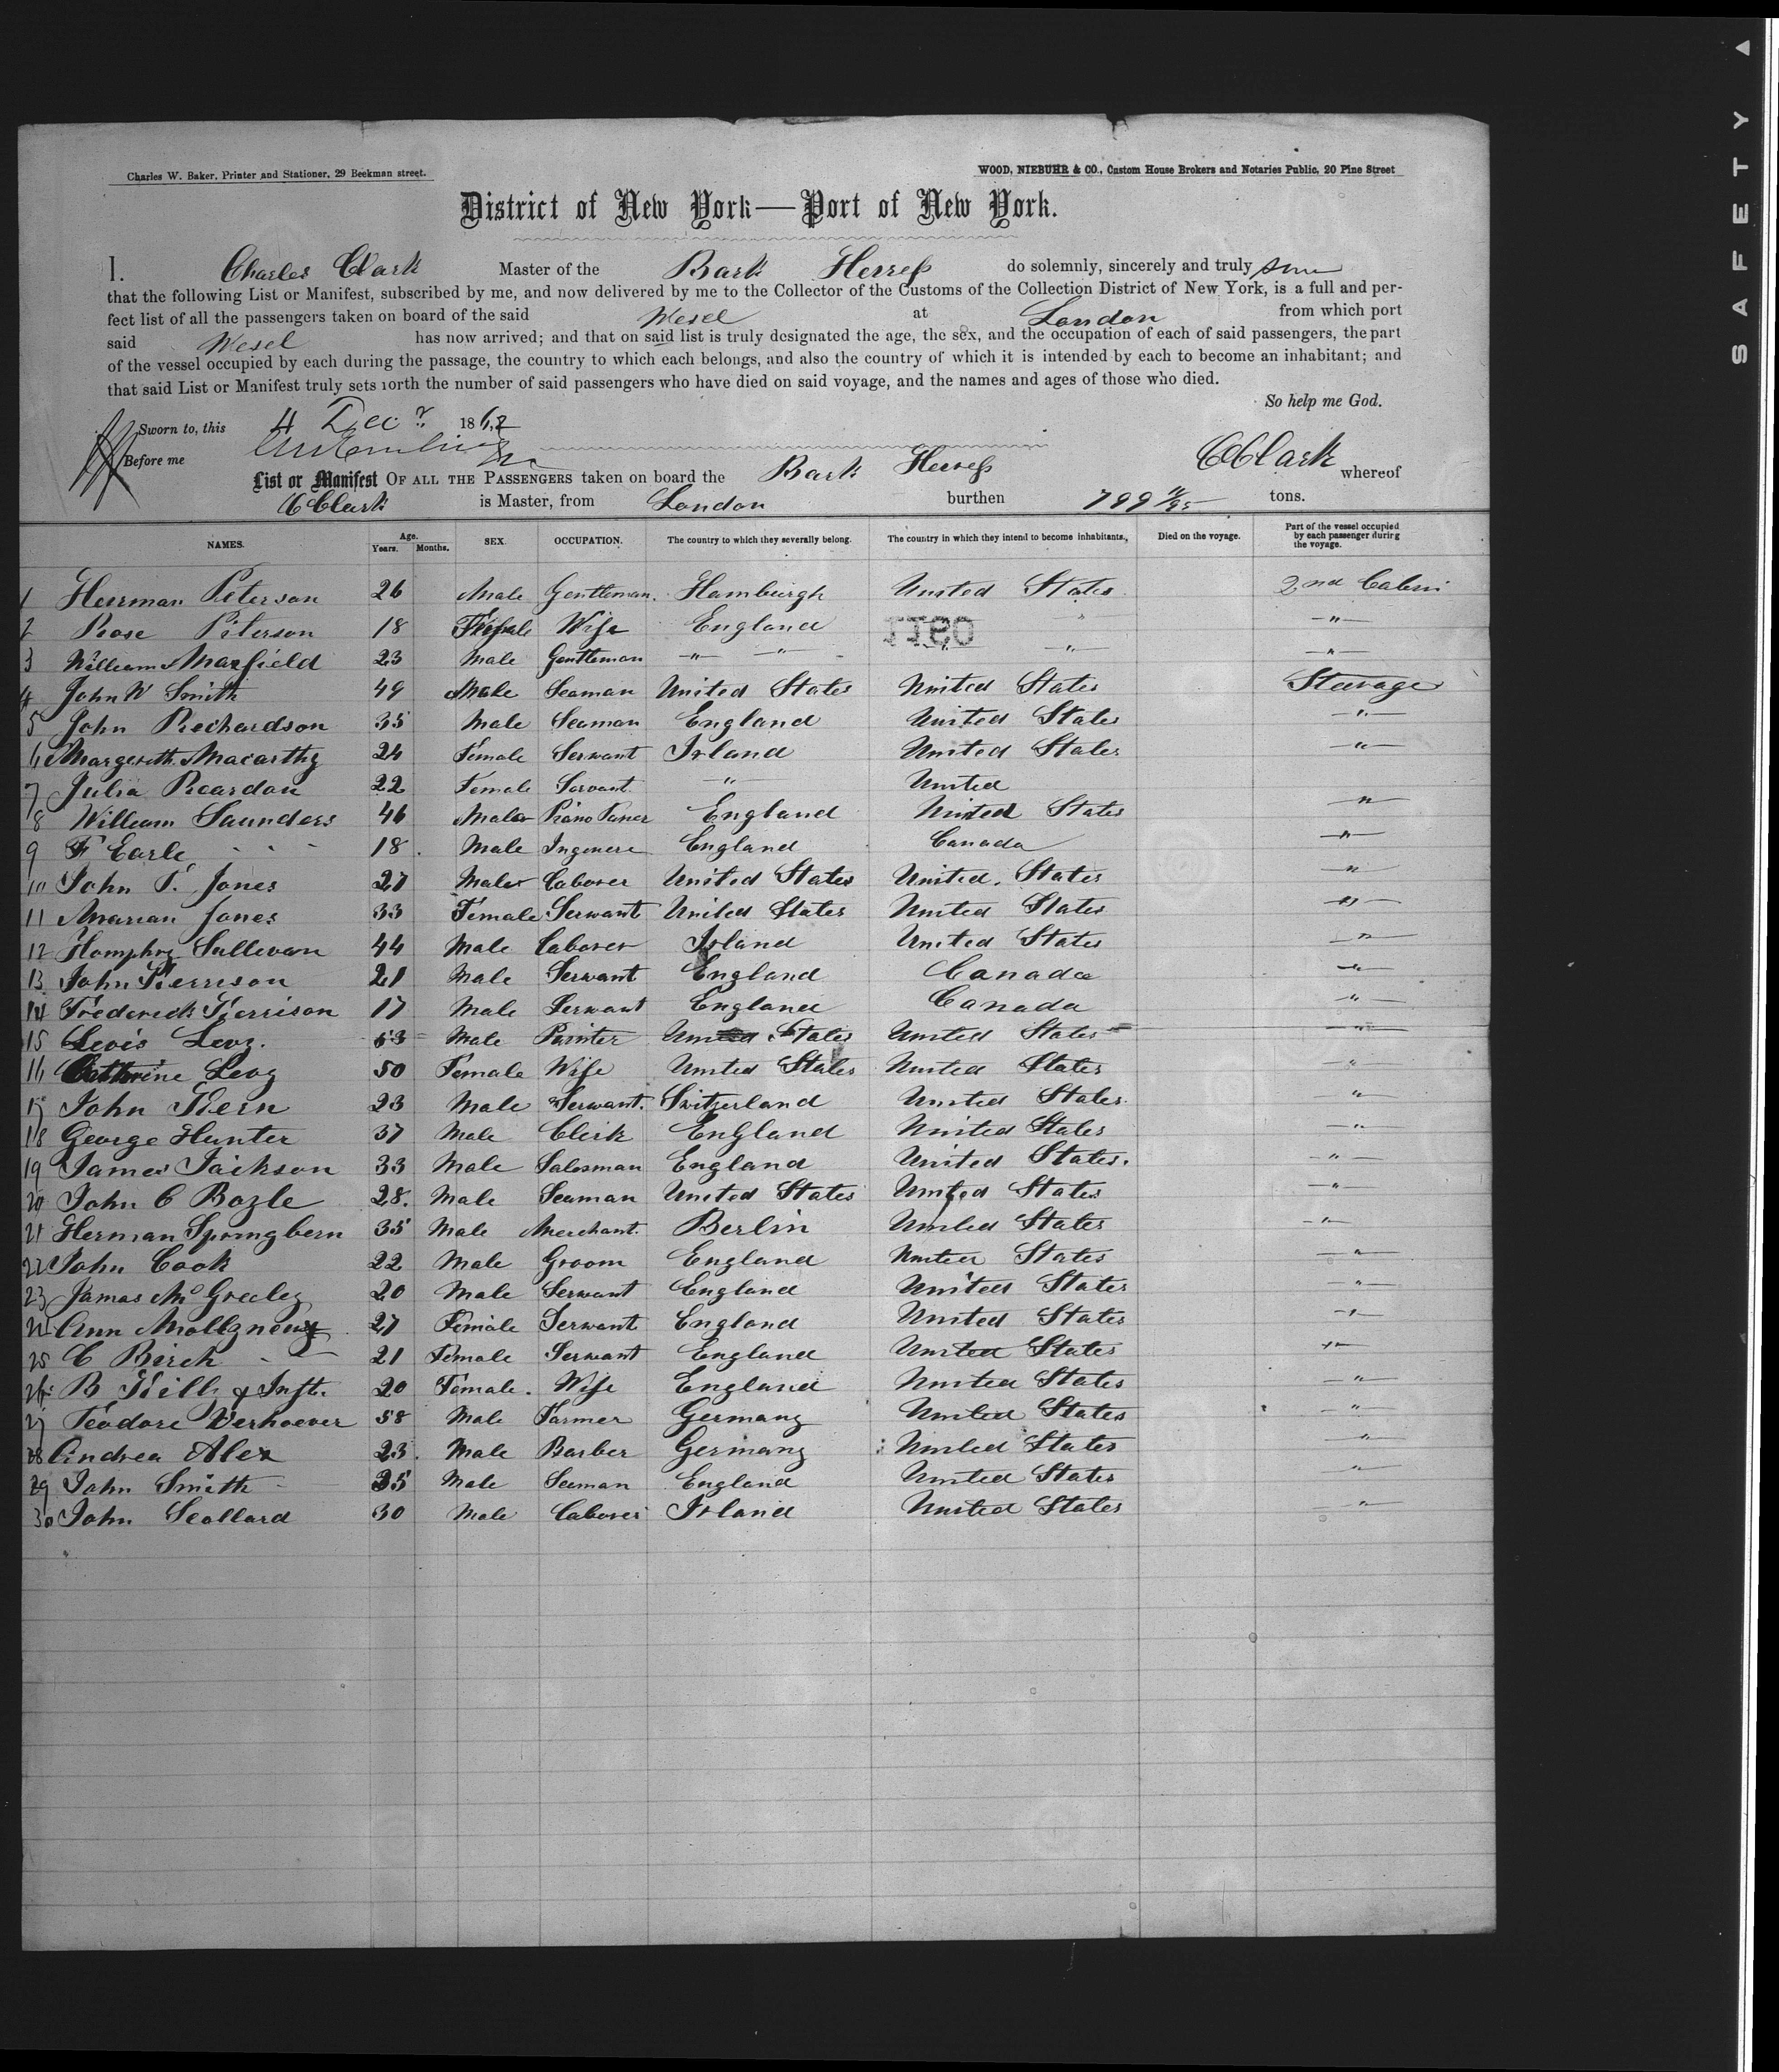 SAFETY ▲
Charles W. Baker, Printer and Stationer, 29 Beekman street.
WOOD, NIEBUHR & CO., Custom House Brokers and Notaries Public, 20 Pine Street
District of New York—Port of New York.
I. Charles Clark Master of the Bark Herress do solemnly, sincerely and truly
that the following List or Manifest, subscribed by me, and now delivered by me to the Collector of the Customs of the Collection District of New York, is a full and per-
fect list of all the passengers taken on board of the said Wesel at London from which port
said Wesel has now arrived; and that on said list is truly designated the age, the sex, and the occupation of each of said passengers, the part
of the vessel occupied by each during the passage, the country to which each belongs, and also the country of which it is intended by each to become an inhabitant; and
that said List or Manifest truly sets forth the number of said passengers who have died on said voyage, and the names and ages of those who died.
So help me God.
Sworn to, this 4 Decr. 1862
Before me
CClark
List or Manifest OF ALL THE PASSENGERS taken on board the Bark Herress whereof
CClark is Master, from London burthen 799 tons.
NAMES. Age. Years. Months. SEX. OCCUPATION. The country to which they severally belong. The country in which they intend to become inhabitants. Died on the voyage. Part of the vessel occupied by each passenger during the voyage.
1 Herrman Peterson 26 Male Gentleman. Hamburgh United States 2nd Cabin
2 Rose Peterson 18 Female Wife England " "
3 William Maxfield 23 Male Gentleman " " " " "
4 John W Smith 49 Male Seaman United States United States Steerage
5 John Rechardson 35 Male Seaman England United States "
6 Margereth Macarthy 24 Female Serwant Irland United States "
7 Julia Reardon 22 Female Servant. " United
8 William Saunders 46 Male Piano Tuner England United States "
9 F Earle 18. Male Ingenere England Canada "
10 John T. Jones 27 Male Laborer United States United. States "
11 Marian Jones 33 Female Serwant United States United States "
12 Homphry Sullevan 44 Male Laborer Irland United States "
13 John Kerrison 21 Male Serwant England Canada "
14 Frederick Kerrison 17 Male Serwant England Canada "
15 Levis Levy. 53 Male Painter United States United States "
16 Cathrine Levy 50 Female Wife United States United States "
17 John Kern 23 Male Serwant. Switzerland United States "
18 George Hunter 37 Male Clerk England United States "
19 James Jackson 33 Male Salesman England United States. "
20 John C Bozle 28. Male Seaman United States United States "
21 Herman Springbern 35 Male Merchant. Berlin United States "
22 John Cook 22 Male Groom England United States "
23 James Mc Greeley 20 Male Serwant England United States "
24 Ann Mollyneux 27 Female Serwant England United States "
25 C Birch 21 Female Serwant England United States "
26 B Kelly & Inft. 20 Female. Wife England United States "
27 Teodore Verhoever 58 Male Farmer Germany United States "
28 Andrea Alex 23. Male Barber Germany United States "
29 John Smith 35 Male Seaman England United States "
30 John Scollard 30 Male Laborer Irland United States "